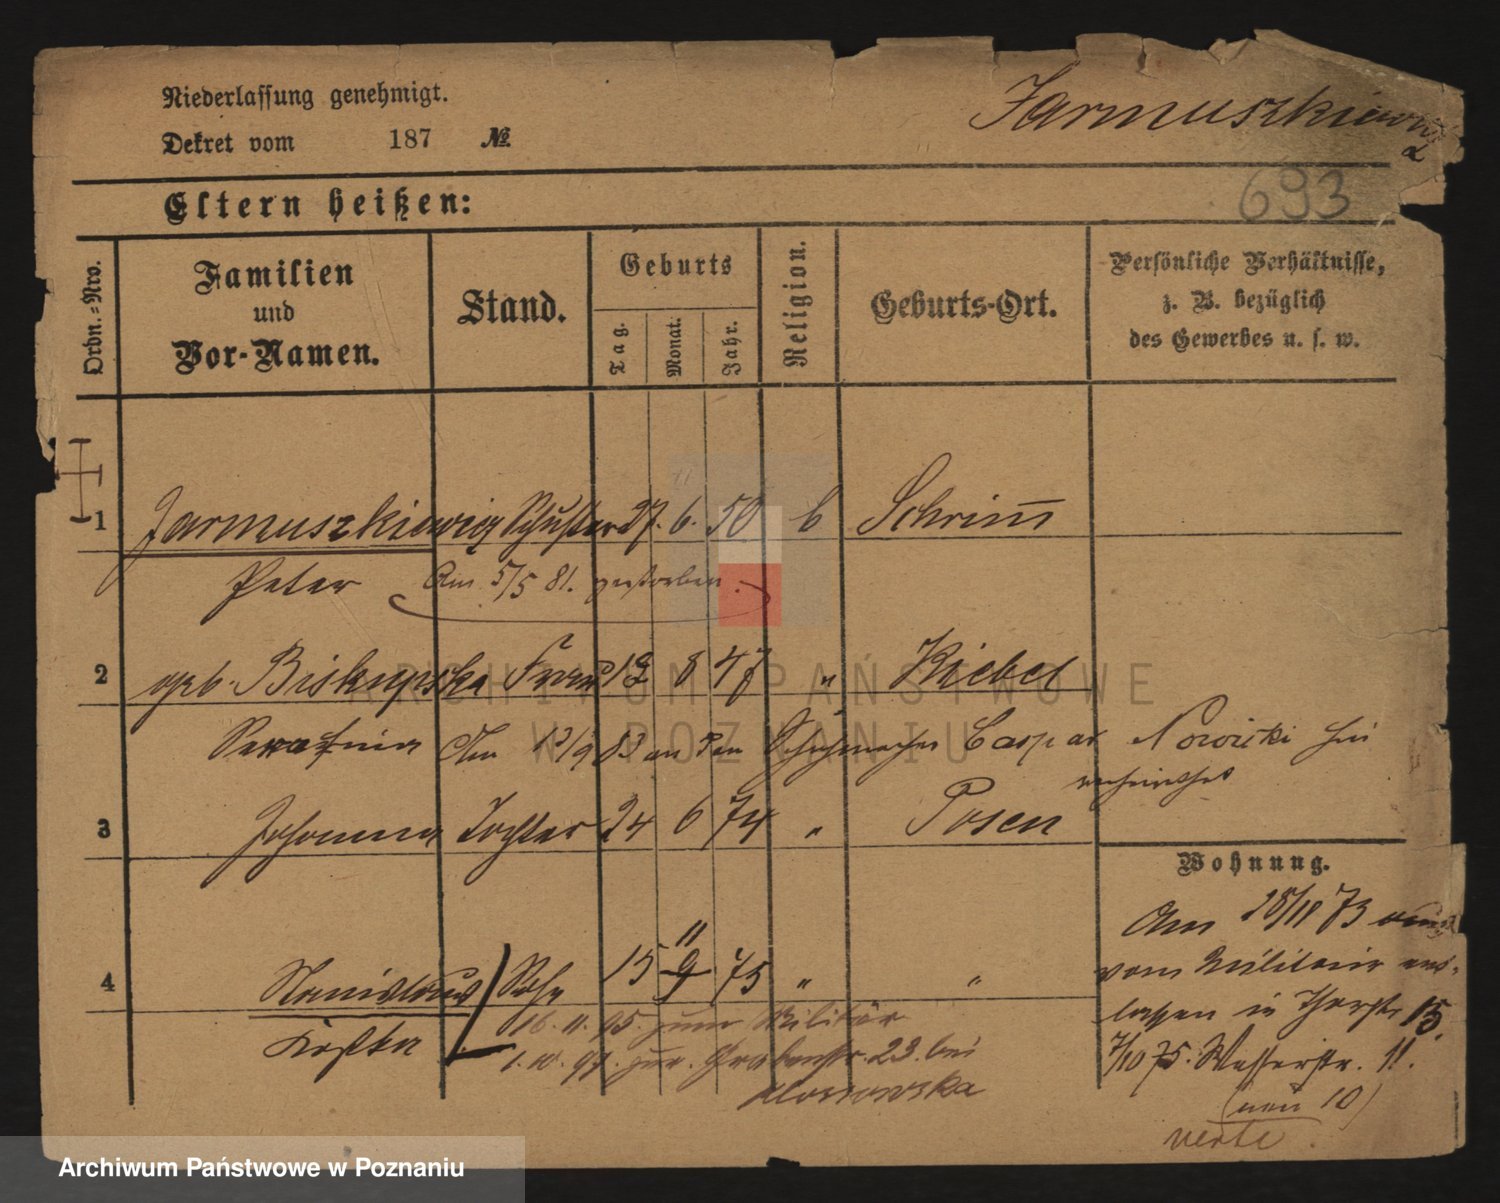 Niederlassung genehmigt.
Jarmuszkiewicz
Dekret vom 187 №
693
Eltern heißen:
Ordn.-Nro.
Familien und Vor-Namen.
Stand.
Geburts
Tag. Monat. Jahr.
Religion.
Geburts-Ort.
Persönliche Verhältnisse,
z. B. bezüglich
des Gewerbes u. s. w.
1 Jarmuszkiewicz Schuster 27. 6. 50 k Schrimm
Peter Am 5/5 81. verstorben.
2 geb. Biskupska Frau 8 47 " Kiebel
Serafina Am 83 an den Schuhmacher Caspar Nowicki
3 Johanna Tochter 24 6 74 " Posen
Wohnung.
Am 73
vom Militair ent-
4 Stanislaus Sohn 15 11 9 75 " "
lassen in 15.
Kostka
16. 11. 95. zum Militär
7/10 75. Wasserstr. 11.
1. 10. 97. zur. Grabenstr. 23. bei
(neu 10)
verte
ARCHIWUM PAŃSTWOWE
W POZNANIU
Archiwum Państwowe w Poznaniu